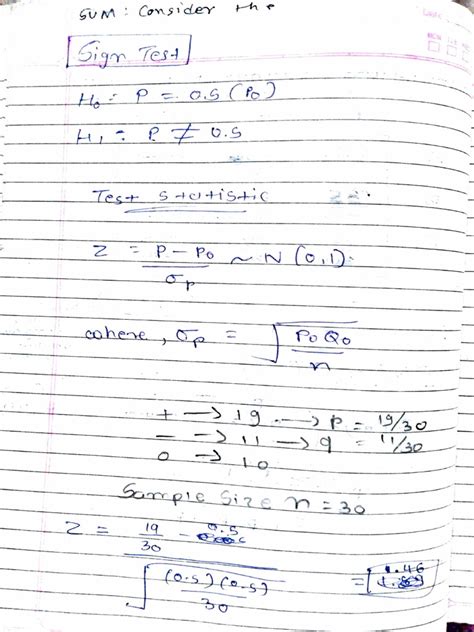 SUM: Consider the
Sign Test
H₀ : P = 0.5 (P₀)
H₁ : P ≠ 0.5
Test statistic
Z = P - P₀ / σp ~ N (0,1).
where, σp = √(P₀Q₀ / n)
+ → 19 → P = 19/30
- → 11 → q = 11/30
0 → 10
Sample Size n = 30
Z = (19/30 - 0.5) / √((0.5)(0.5) / 30) = 1.46